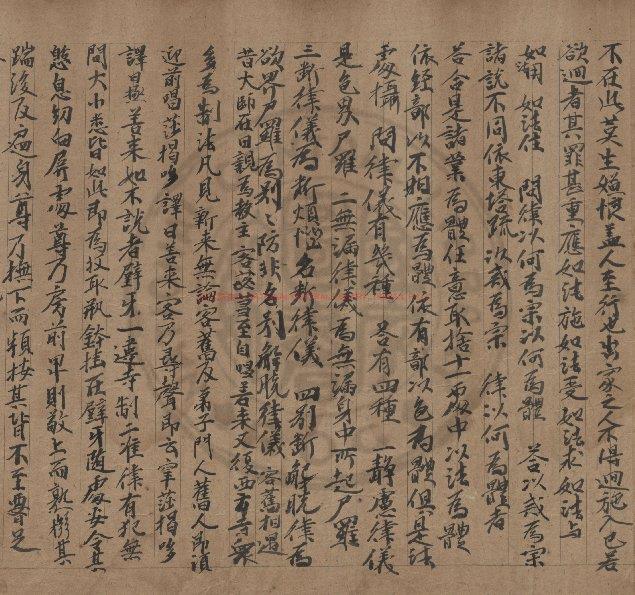 不在此莫生殆愧盖人至行也出家之人不得迴施入己若
欲迴者其罪甚重應如法施如法受如法求如法与
如淍如法住 問律以何為宗以何為體 荅以戒為宗
諸說不同依東塔䟽以戒為宗 律以何為體者
荅合是諸業為體任意取捨十一處中以法為體
依經部以不相應為體依有部以色為體俱是法
處攝 問律儀有幾種 荅有四種 一靜慮律儀
是色界尸羅 二無漏律儀為無漏身中所起尸羅
三斷律儀為斷煩惱名斷律儀 四別斷解脫律為
欲界尸羅為別〻防非名別解脫律儀 客舊相遇
昔大師在日親為教主客苾蒭至自唱善来又復西方寺衆
多為制法凡見新来無論客舊及弟子門人舊人即須
迎前唱莎揭哆譯曰善来客乃尋聲即云窣莎揭哆
譯曰極善来如不說者 一違寺制二准律有犯無
問大小悉皆如此即為投取瓶鉢掛在壁牙隨處安令其
憩息幼向屏處尊乃房前卑則敬上而熟 其
踹後及遍身尊乃撫下而頻按其背不至 足